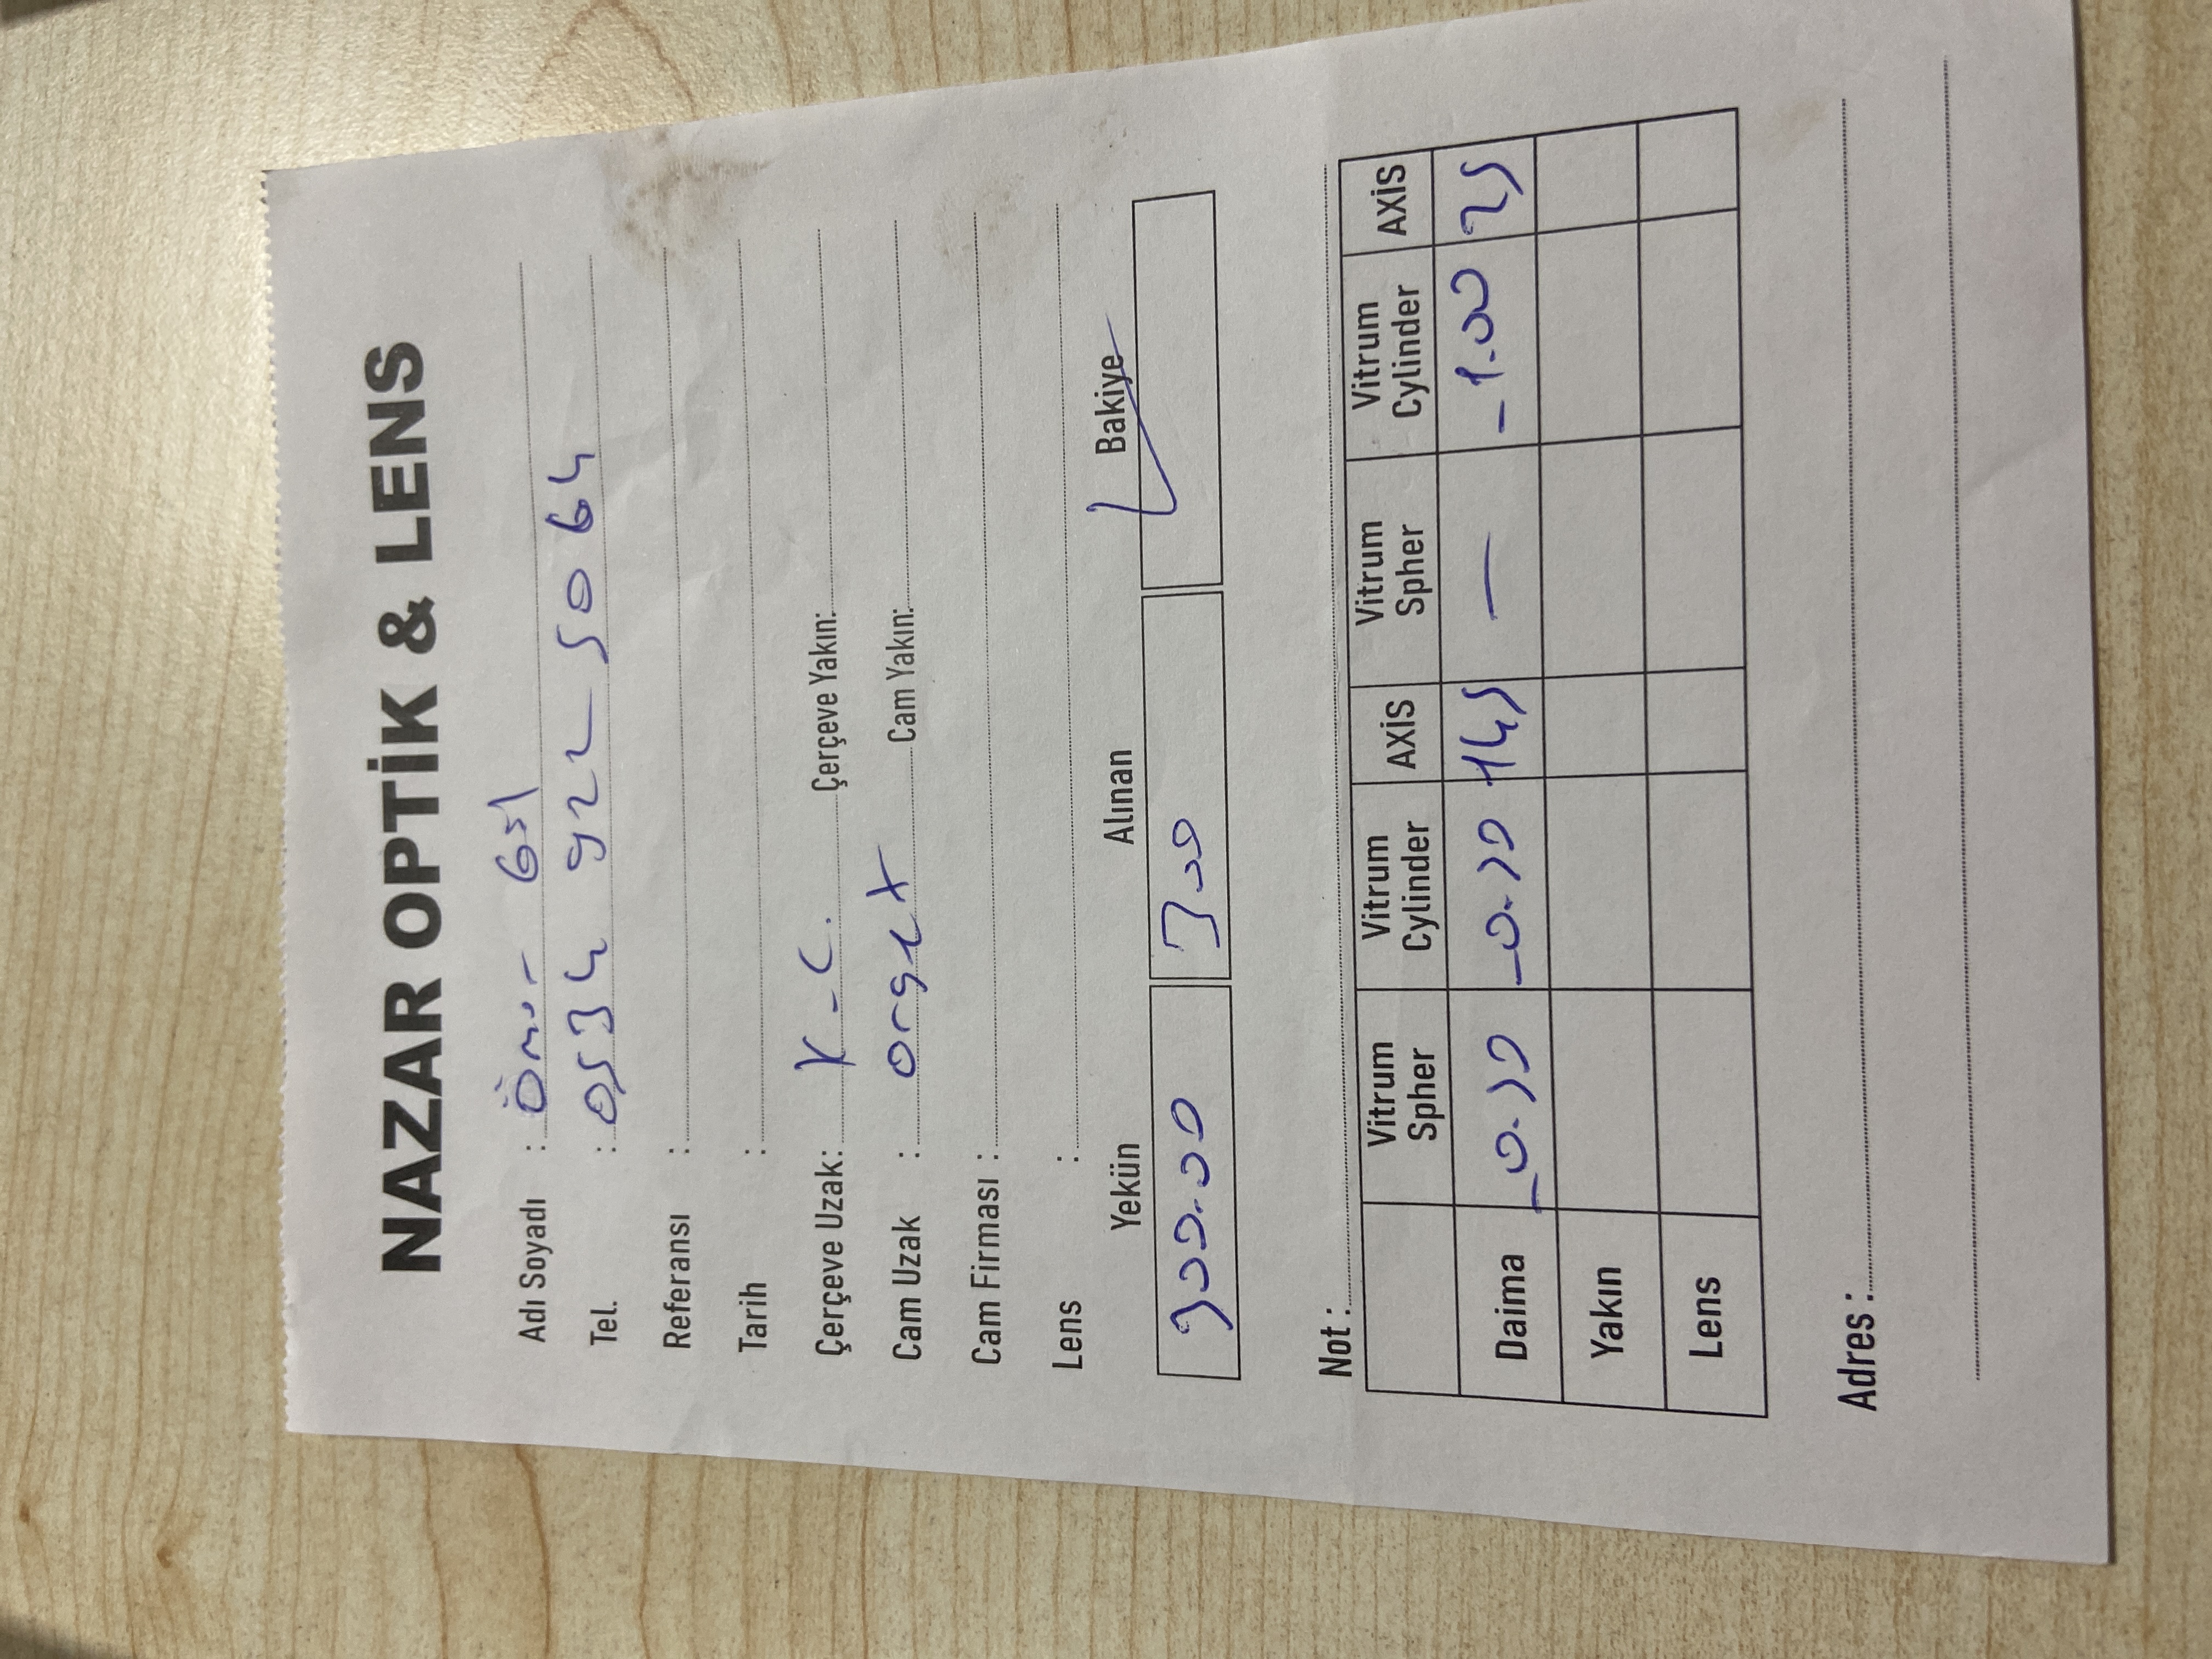 NAZAR OPTİK & LENS
Adı Soyadı : Ömür Gül
Tel. : 0534 922 50 64
Referansı :
Tarih :
Çerçeve Uzak: K-C. Çerçeve Yakın:
Cam Uzak : orgex Cam Yakın:
Cam Firması :
Lens :
Yekün Alınan Bakiye
900.00
Not :
Vitrum Spher Vitrum Cylinder AXİS Vitrum Spher Vitrum Cylinder AXİS
Daima -0.50 -0.50 145 — -1.00 25
Yakın
Lens
Adres :